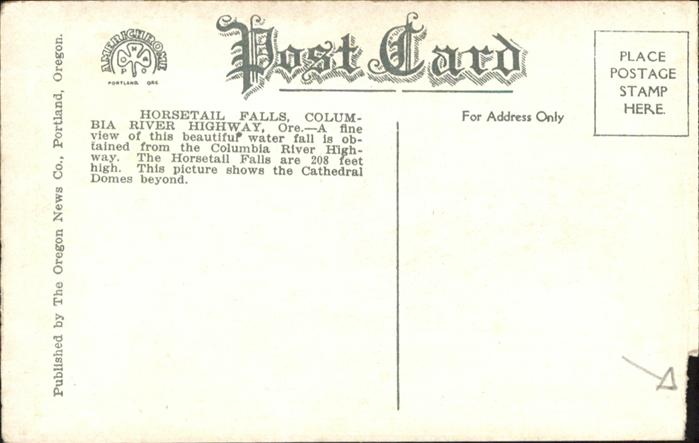 AMERICHROME
PORTLAND, ORE.
Post Card
PLACE
POSTAGE
STAMP
HERE.
For Address Only
HORSETAIL FALLS, COLUM-
BIA RIVER HIGHWAY, Ore.—A fine
view of this beautiful water fall is ob-
tained from the Columbia River High-
way. The Horsetail Falls are 208 feet
high. This picture shows the Cathedral
Domes beyond.
Published by The Oregon News Co., Portland, Oregon.